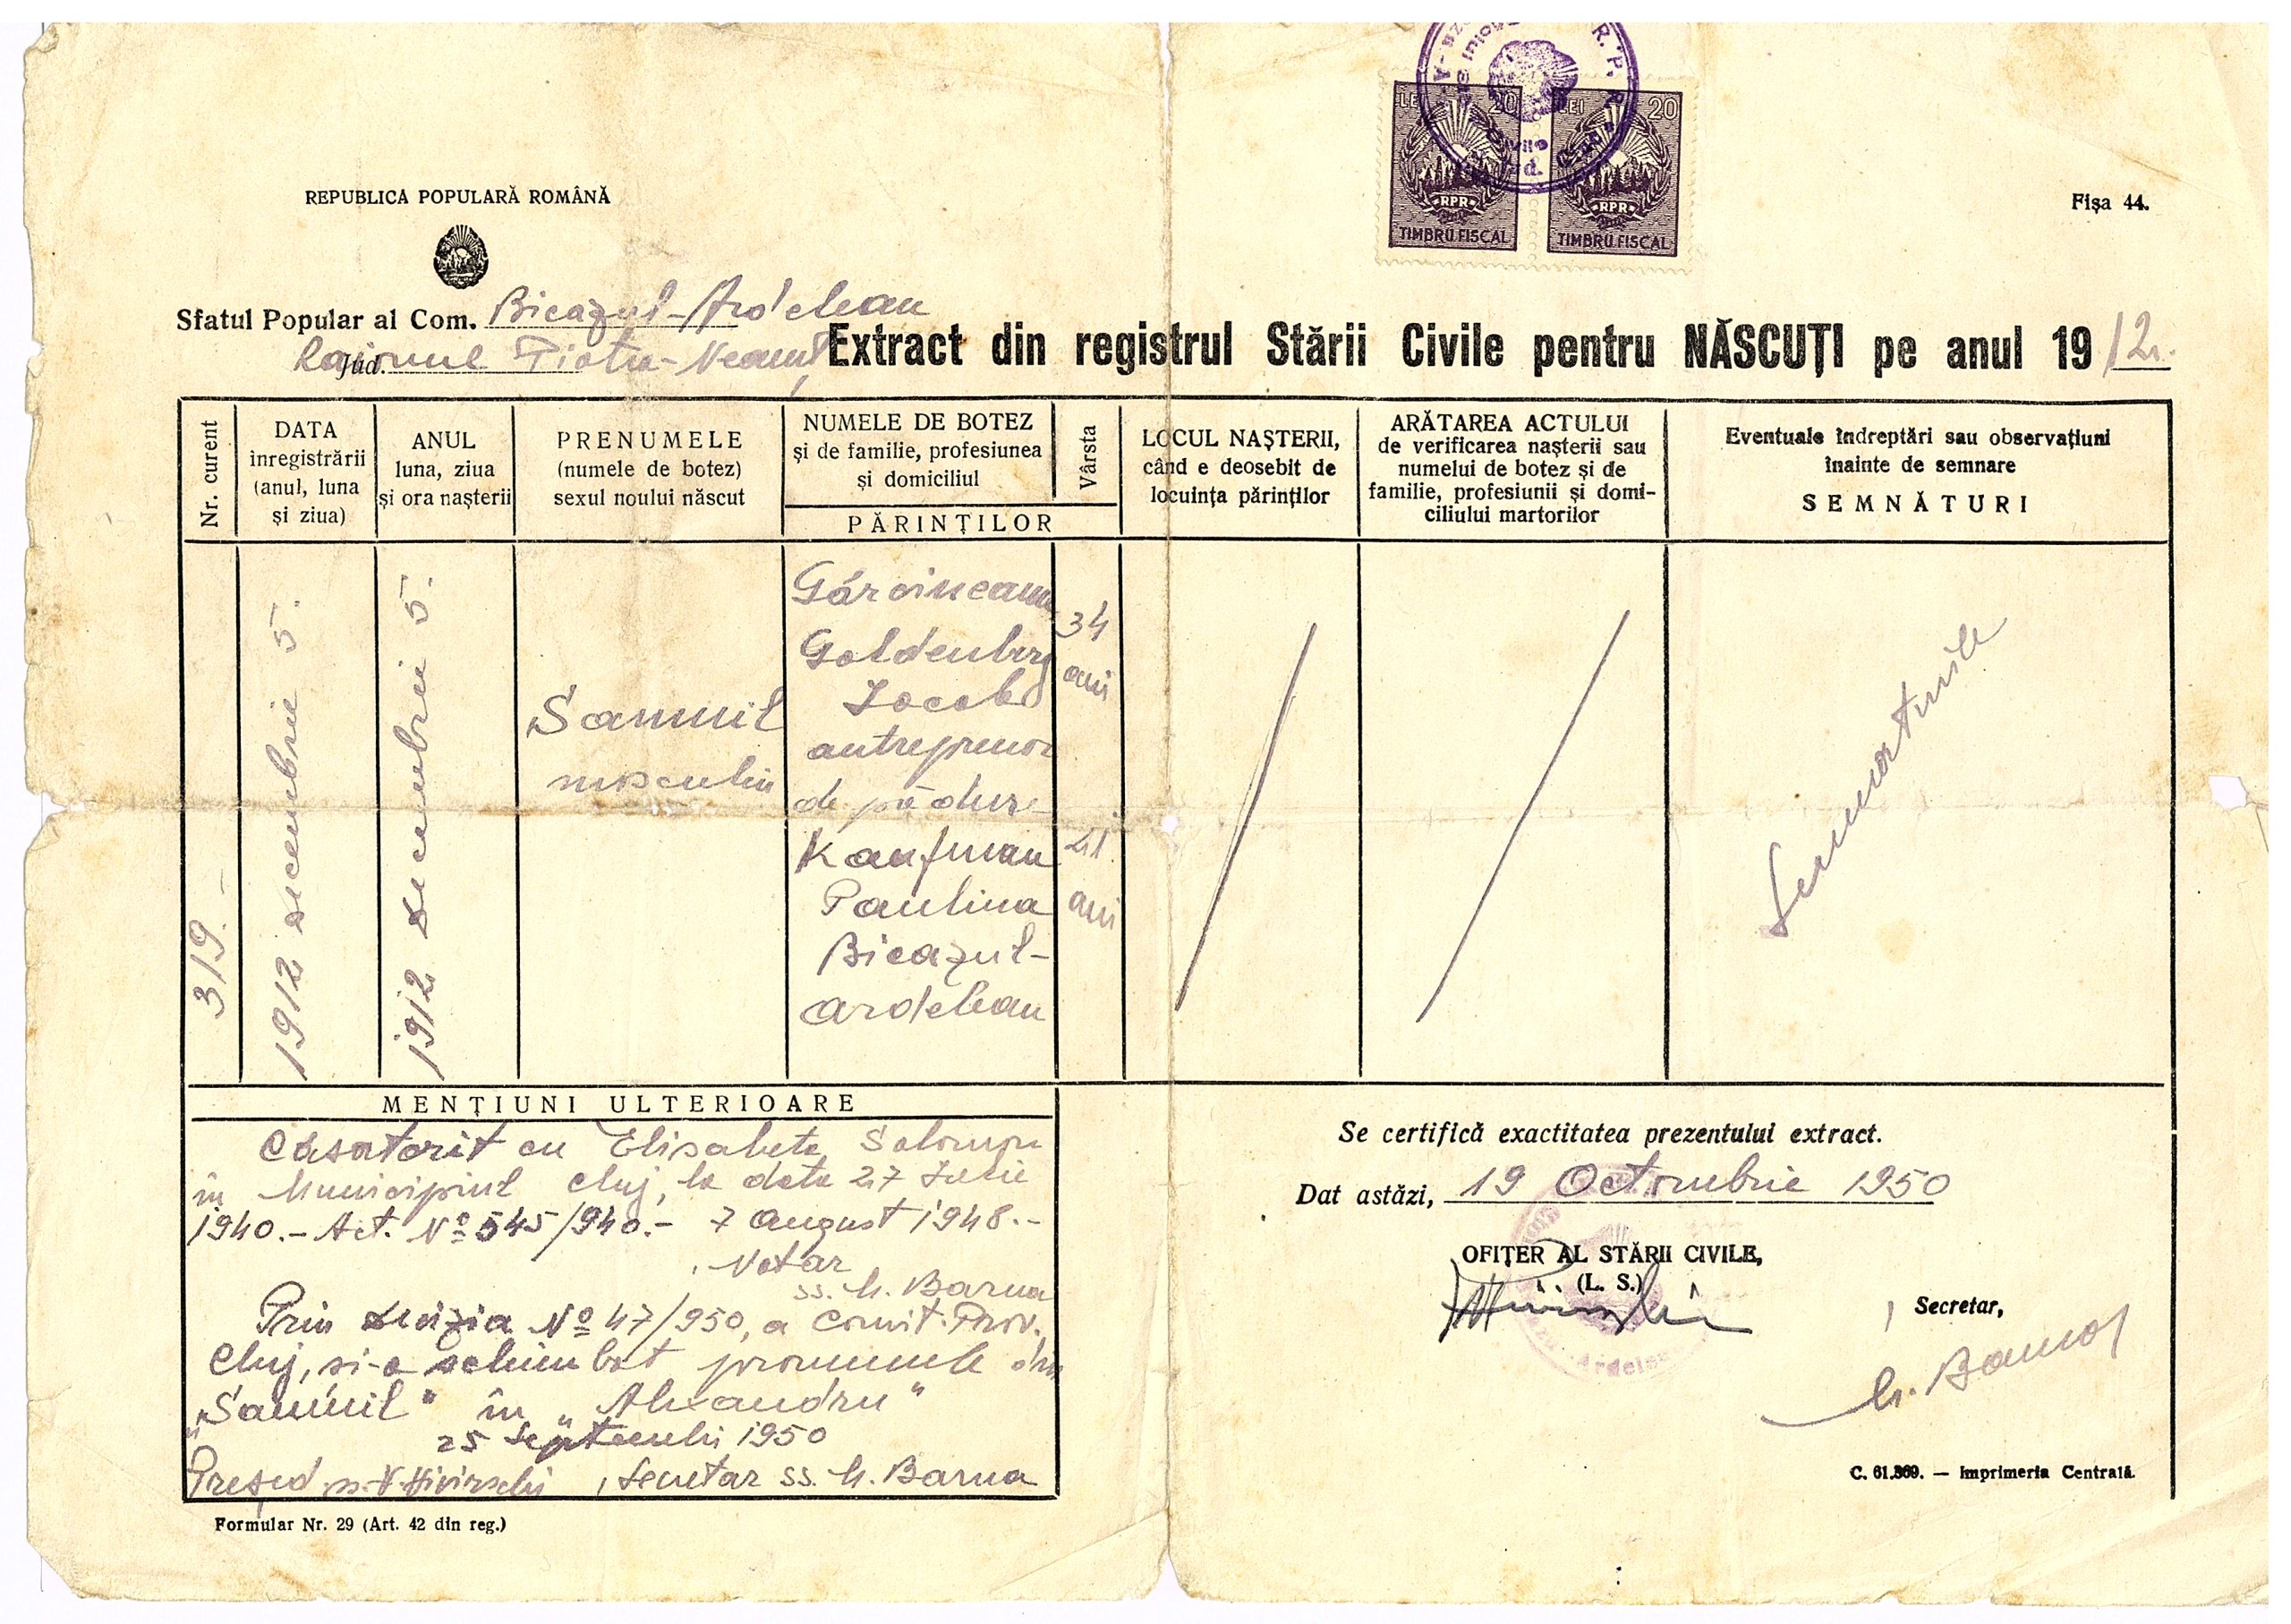 R.P.R.
LEI 20 LEI 20
RPR RPR
TIMBRU FISCAL TIMBRU FISCAL
REPUBLICA POPULARĂ ROMÂNĂ
Fișa 44.
Sfatul Popular al Com. Bicazul-Ardelean
Jud. Raionul Piatra-Neamț
Extract din registrul Stării Civile pentru NĂSCUȚI pe anul 1912.
Nr. curent
DATA
înregistrării
(anul, luna
și ziua)
ANUL
luna, ziua
și ora nașterii
PRENUMELE
(numele de botez)
sexul noului născut
NUMELE DE BOTEZ
și de familie, profesiunea
și domiciliul
PĂRINȚILOR
Vârsta
LOCUL NAȘTERII,
când e deosebit de
locuința părinților
ARĂTAREA ACTULUI
de verificarea nașterii sau
numelui de botez și de
familie, profesiunii și domi-
ciliului martorilor
Eventuale îndreptări sau observațiuni
înainte de semnare
SEMNĂTURI
319.-
1912 decembrie 5.
1912 decembrie 5.
Samuil
masculin
Goldenberg
Iacob
antreprenor
de pădure
Kaufman
Paulina
Bicazul-
ardelean
34
ani
21.
ani
Semnaturile
MENȚIUNI ULTERIOARE
Căsătorit cu Elisabeta Solomon
în Municipiul Cluj, la data 27 Iunie
1940.- Act. Nº 545/940.- 7 August 1948.-
Notar
ss. M. Barna
Prin decizia Nº 47/950, a Comit. Prov.
Cluj, si-a schimbat pronumele din
„Samuil" în „Alexandru"
25 Septembri 1950
Președ , Secretar ss. M. Barna
Formular Nr. 29 (Art. 42 din reg.)
Se certifică exactitatea prezentului extract.
Dat astăzi, 19 Octombrie 1950
OFIȚER AL STĂRII CIVILE,
(L. S.)
Secretar,
M. Barna
C. 61.369. — Imprimeria Centrală.